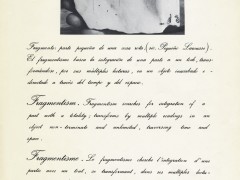 Fragmento: parte pequeña de una cosa rota (sc. Pequeño Larousse).
El fragmentismo busca la integración de una parte a un todo, trans-
formándolo, por sus múltiples lecturas, en un objeto inacabado e
ilimitado a través del tiempo y del espacio.
Fragmentism. Fragmentism searches for integration of a
part with a totality; transforms by multiple readings in an
object non-terminate and unlimited, traversing time and
space.
Fragmentisme. Le fragmentisme cherche l'intégration d'une
partie avec un tout, se transformant, dans ses multiples lectu-